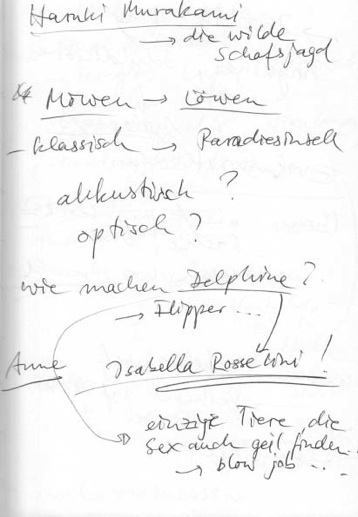 Haruki Murakami
→ die wilde
Schafsjagd
Möwen → Löwen
– klassisch → Paradiesinsel
akkustisch ?
optisch ?
wie machen Delphine ?
→ Flipper ...
Anne Isabella Rosselini !
einzige Tiere, die
Sex auch geil finden ..
→ blow job ...